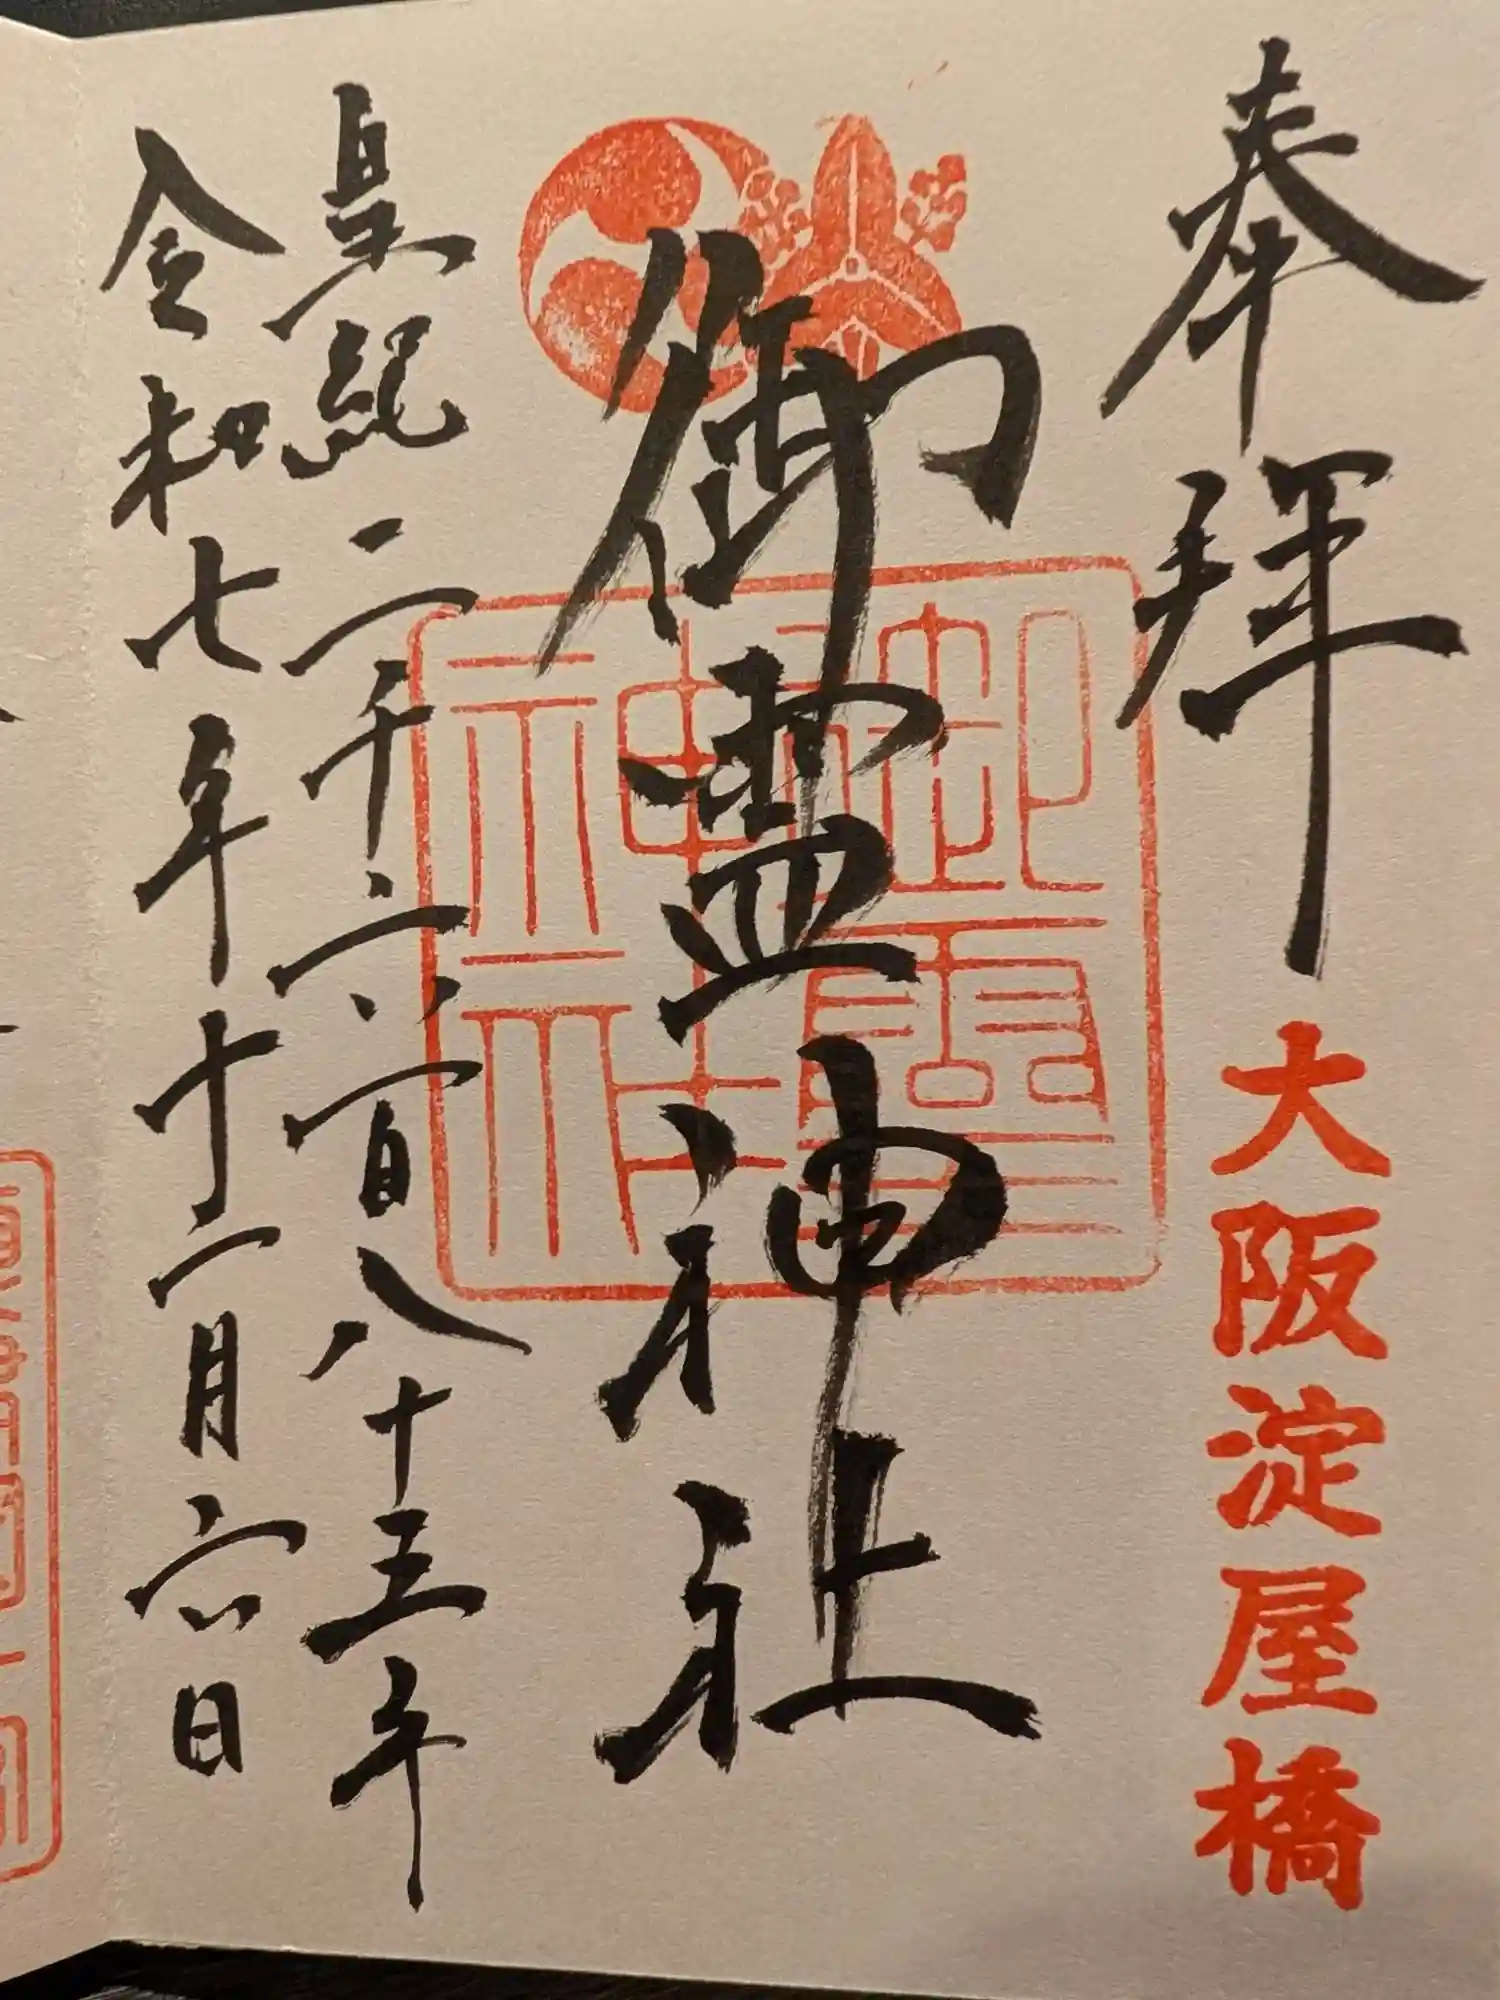 奉拝
大阪淀屋橋
御霊神社
御霊
神社
皇紀二千六百八十五年
令和七年十二月六日